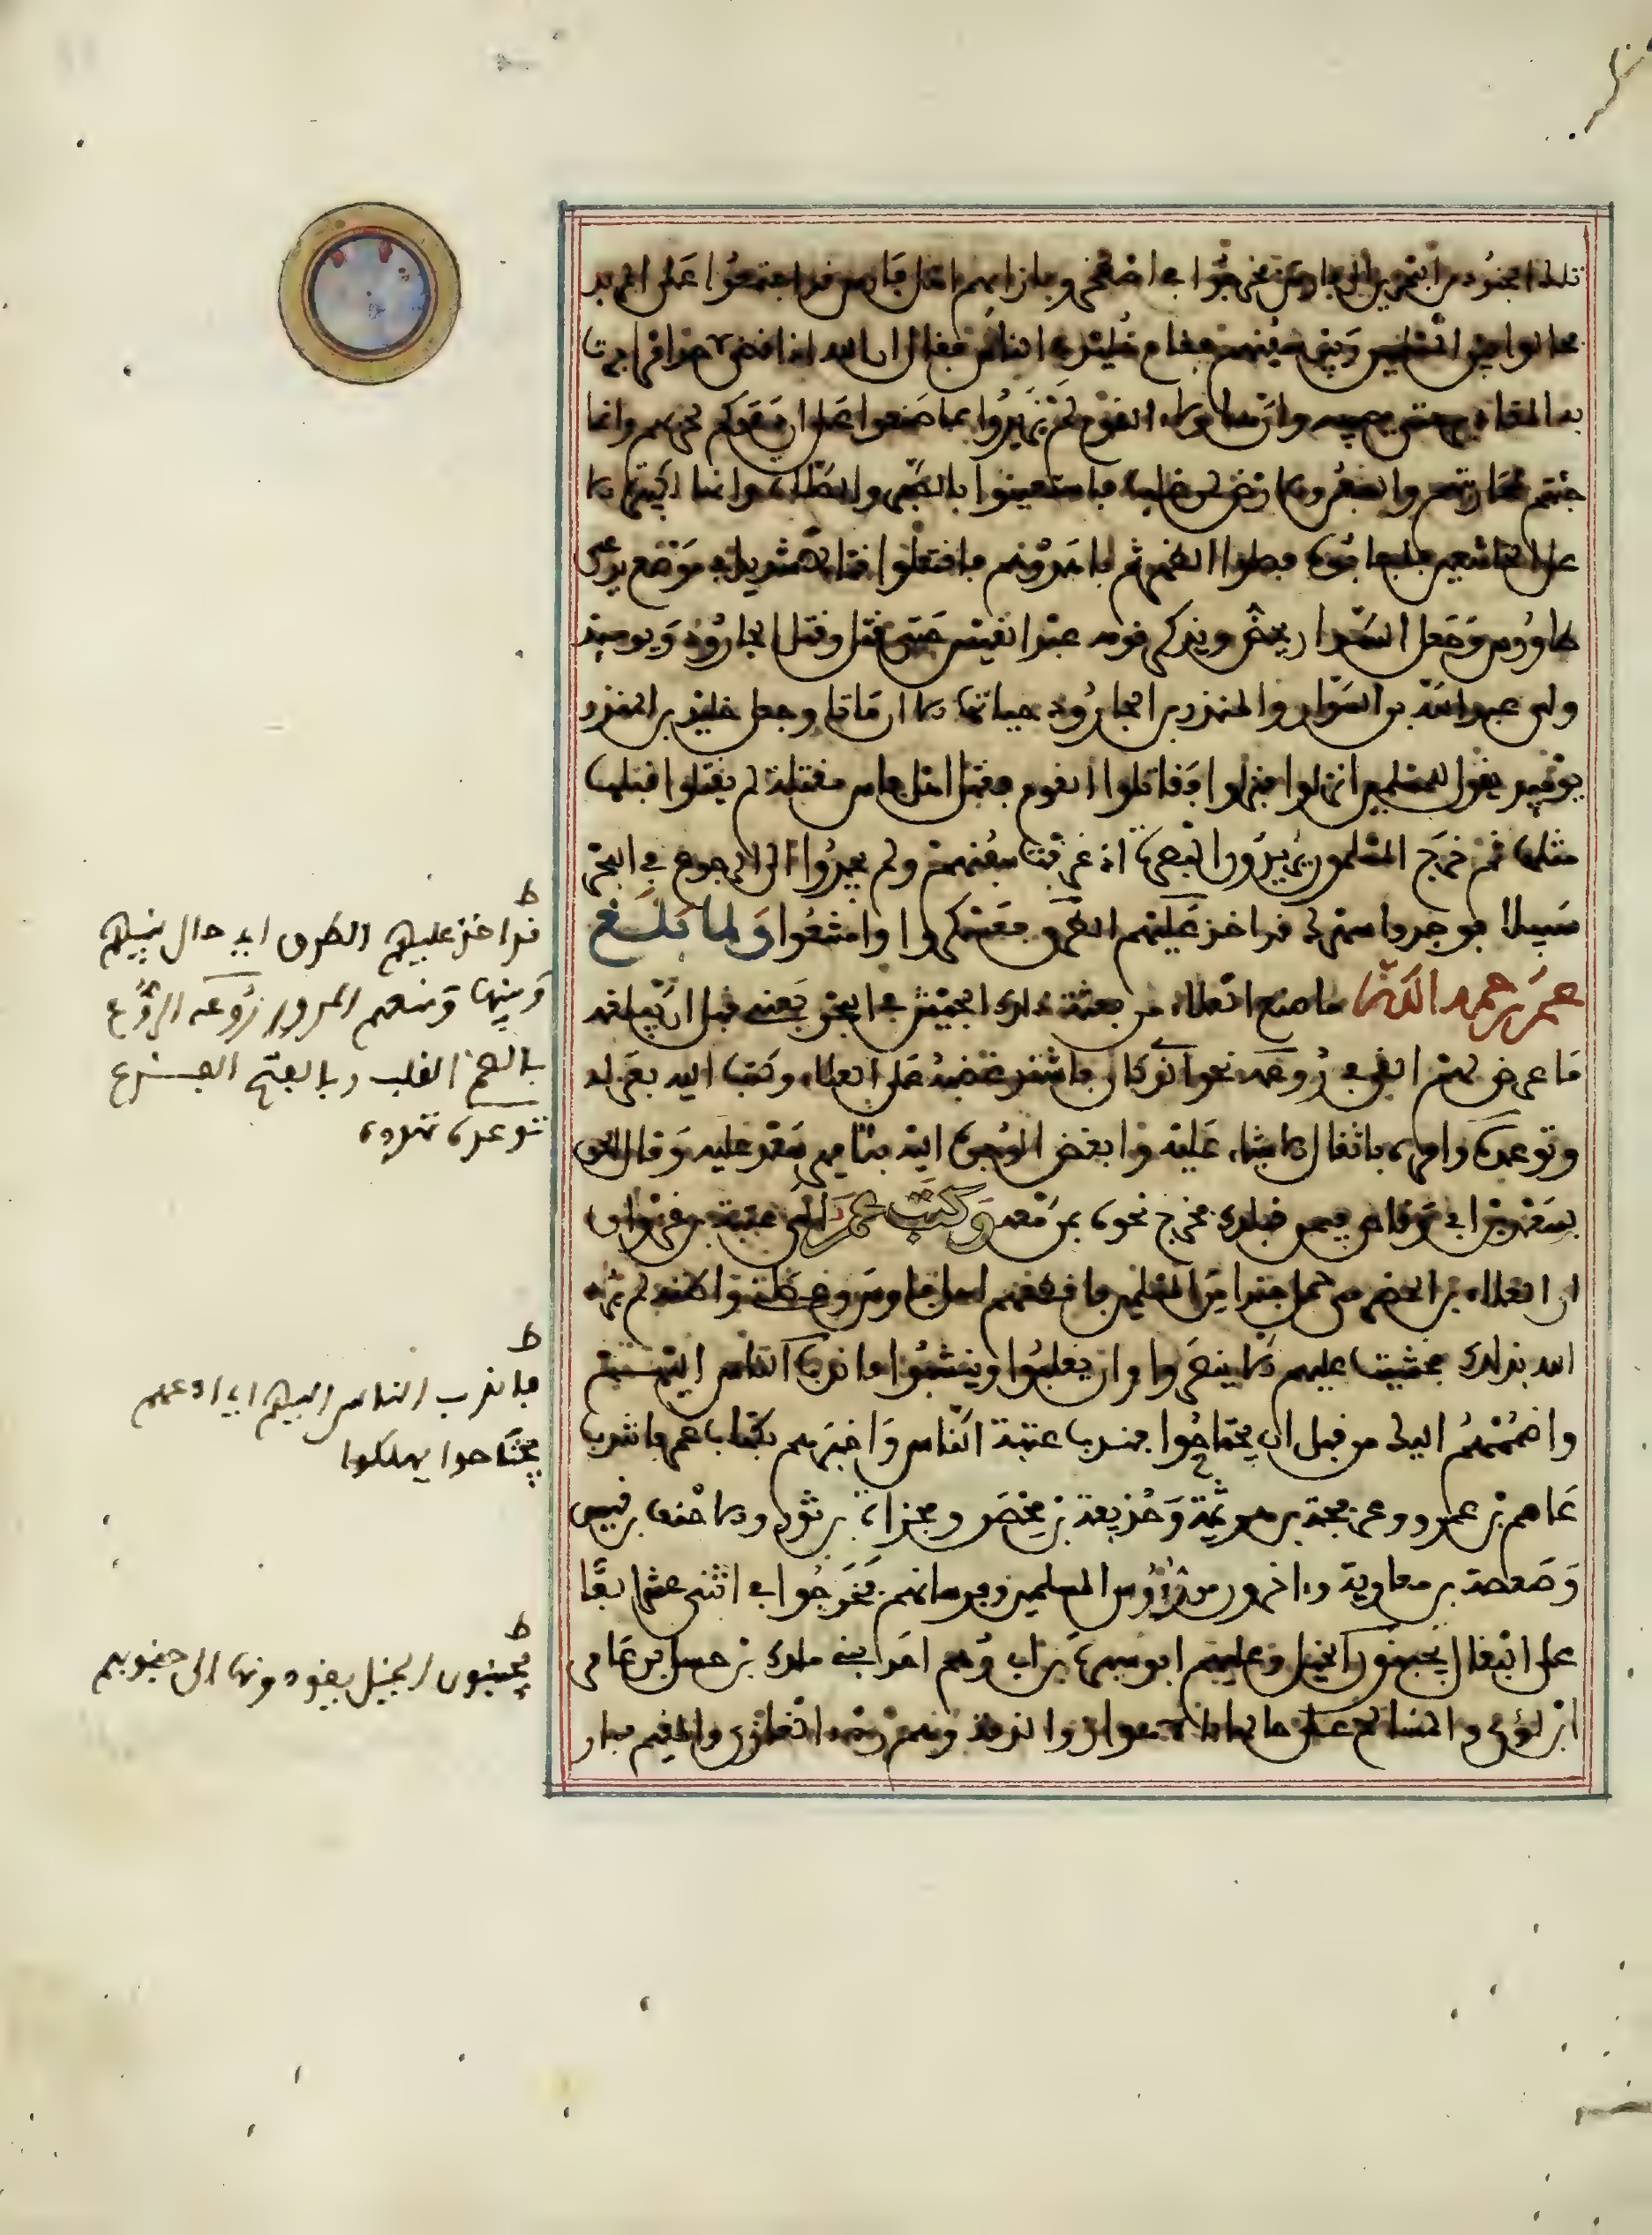 تلك الجنود من البحرين إلى فارس فخرجوا في اصطخر وبازائهم اهل فارس قد اجتمعوا على الهربذ
فحالوا بين المسلمين وبين سفنهم فقام خليد في الناس فقال ان الله اذا قضى امرا جرت
به المقادير حتى يصيبه وان هؤلاء القوم لم يزيدوا بما صنعوا على ان دعوكم لحربهم وانما
جئتم لمحاربتهم والسفن والارض لمن غلب فاستعينوا بالصبر والصلاة وانها لكبيرة الا
على الخاشعين فاجابوه فصلوا الظهر ثم ناهدوهم فاقتتلوا قتالا شديدا في موضع يدعى
طاووس وجعل السوار يحض ويذكر قومه عبد القيس حتى قتل وقتل الجارود ويومئذ
ولي عبد الله بن السوار والمنذر بن الجارود حياتهما الا ان ماتا وجعل خليد بن المنذر
يومئذ يقول للمسلمين انزلوا فنزلوا وقاتلوا القوم فقتل اهل فارس مقتلة لم يقتلوا قبلها
مثلها ثم خرج المسلمون يريدون البصرة اذ غرقت سفنهم ولم يجدوا الى الرجوع في البحر
سبيلا فوجدوا سهرك قد اخذ عليهم الطرق فعسكروا وامتنعوا ولما بلغ
عمر رحمه الله ما صنع العلاء من بعثة ذلك الجيش في البحر يعني قبل ان يبلغه
ما عرض لهم القي في روعه نحو الذي كان فاشتد غضبه على العلاء وكتب اليه بعزله
وتوعده وامره باثقل الاشياء عليه وابغض الوجوه اليه بتامير سعد عليه وقال الحق
بسعد بن ابي وقاص فيمن قبلك فخرج نحوه بمن معه وكتب عمر الى عتبة بن غزوان
ان العلاء بن الحضرمي حمل جندا من المسلمين فاقطعهم اهل فارس وعصاني واظنه لم يرد
الله بذلك فخشيت عليهم الا ينصروا وان يغلبوا وينشبوا فاندب الناس اليهم
واضممهم اليك من قبل ان يجتاحوا فندب عتبة الناس واخبرهم بكتاب عمر فانتدب
عاصم بن عمرو وعرفجة بن هرثمة وحذيفة بن محصن ومجزاة بن ثور والاحنف بن قيس
وصعصعة بن معاوية واخرون من رؤوس المسلمين وفرسانهم فخرجوا في اثني عشر الفا
على البغال يجنبون الخيل وعليهم ابو سبرة بن ابي رهم احد بني ملك بن حسل بن عامر
ابن لؤي والمسالح على حالها بالاهواز والذمة وهم ردء للغازي والمقيم فسار
ط
قد اخذ عليهم الطرق اي حال بينهم
وبينها ومنعهم المرور روعه الروع
بالضم القلب وبالفتح الفزع
توعده تهدده
ط
فاندب الناس اليهم اي ادعهم
يجتاحوا يهلكوا
ط
يجنبون الخيل يقودونها الى جنوبهم